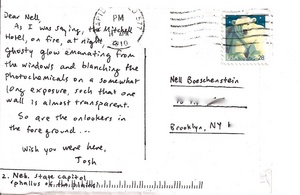 Dear Nell,
As I was saying, the Mitchell
Hotel, on fire, at night,
ghostly glow emanating from
the windows and blanching the
photochemicals on a somewhat
long exposure, such that one
wall is almost transparent.
So are the onlookers in
the foreground...
Wish you were here,
Josh
2. Neb. state capitol
PM
2010
28
Nell Boeschenstein
Brooklyn, NY